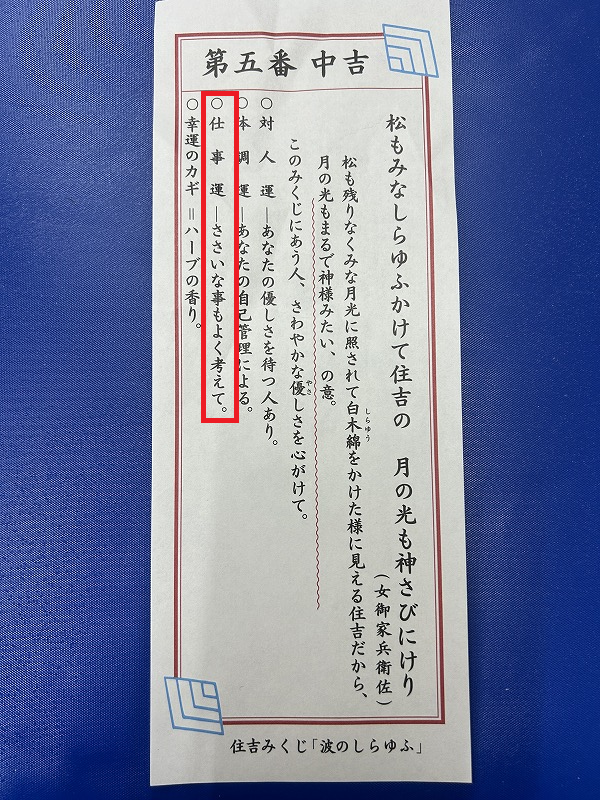 第五番 中吉
松もみなしらゆふかけて住吉の 月の光も神さびにけり
(女御家兵衛佐)
松も残りなくみな月光に照されて白木綿をかけた様に見える住吉だから、
しらゆう
月の光もまるで神様みたい、の意。
このみくじにあう人、さわやかな優しさを心がけて。
やさ
○対人運―あなたの優しさを待つ人あり。
○体調運―あなたの自己管理による。
○仕事運―ささいな事もよく考えて。
○幸運のカギ=ハーブの香り。
住吉みくじ「波のしらゆふ」